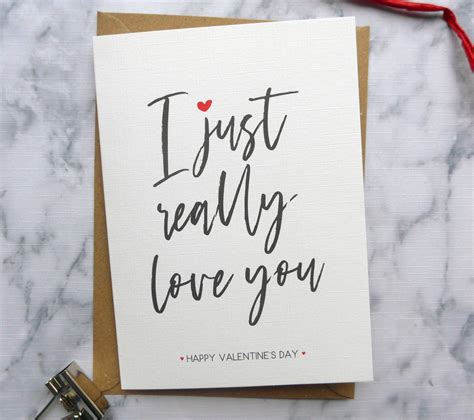 I just
really
love you
♥ HAPPY VALENTINE'S DAY ♥